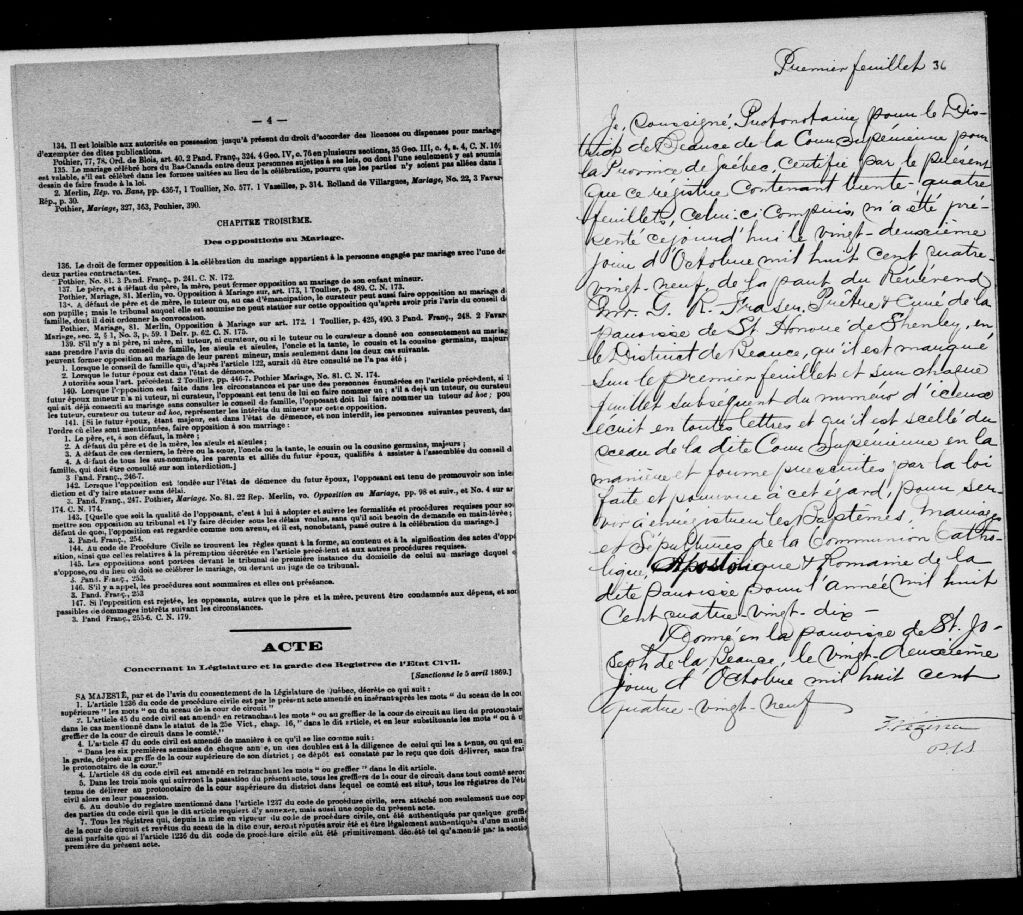 — 4 —
134. Il est loisible aux autorités en possession jusqu'à présent du droit d'accorder des licences ou dispenses pour mariage
d'exempter des dites publications.
Pothier, 77, 78. Ord. de Blois, art. 40. 2 Pand. Franç., 324. 4 Geo. IV, c. 76 en plusieurs sections, 35 Geo. III, c. 4, s. 4, C. N. 169
135. Le mariage célébré hors du Bas-Canada entre deux personnes sujettes à ses lois, ou dont l'une seulement y est soumis
est valable, s'il est célébré dans les formes usitées au lieu de la célébration, pourvu que les parties n'y soient pas allées dans l
dessein de faire fraude à la loi.
2. Merlin, Rép. vo. Bans, pp. 436-7, 1 Toullier, No. 577. 1 Vazeilles, p. 314. Rolland de Villargues, Mariage, No. 22, 3 Favar
Rép., p. 30.
Pothier, Mariage, 327, 363, Pouhier, 390.
CHAPITRE TROISIÈME.
Des oppositions au Mariage.
136. Le droit de former opposition à la célébration du mariage appartient à la personne engagée par mariage avec l'une de
deux parties contractantes.
Pothier, No. 81. 3 Pand. Franç., p. 241. C. N. 172.
137. Le père, et à défaut du père, la mère, peut former opposition au mariage de son enfant mineur.
Pothier, Mariage, 81. Merlin, vo. Opposition à Mariage sur art. 173, 1 Toullier, p. 489. C. N. 173.
138. A défaut de père et de mère, le tuteur ou, au cas d'émancipation, le curateur peut aussi faire opposition au mariage d
son pupille; mais le tribunal auquel elle est soumise ne peut statuer sur cette opposition qu'après avoir pris l'avis du conseil d
famille, dont il doit ordonner la convocation.
Pothier, Mariage, 81. Merlin, Opposition à Mariage sur art. 172. 1 Toullier, p. 425, 490. 3 Pand. Franç., 248. 2 Favar
Mariage, sec. 2, § 1, No. 3, p. 59. 1 Delv. p. 62. C. N. 175.
139. S'il n'y a ni père, ni mère, ni tuteur, ni curateur, ou si le tuteur ou le curateur a donné son consentement au mariag
sans prendre l'avis du conseil de famille, les aïeuls et aïeules, l'oncle et la tante, le cousin et la cousine germains, majeur
peuvent former opposition au mariage de leur parent mineur, mais seulement dans les deux cas suivants.
1. Lorsque le conseil de famille qui, d'après l'article 122, aurait dû être consulté ne l'a pas été;
2. Lorsque le futur époux est dans l'état de démence.
Autorités sous l'art. précédent. 2 Toullier, pp. 446-7. Pothier Mariage, No. 81. C. N. 174.
140. Lorsque l'opposition est faite dans les circonstances et par une des personnes énumérées en l'article précédent, si l
futur époux mineur n'a ni tuteur, ni curateur, l'opposant est tenu de lui en faire nommer un; s'il a déjà un tuteur, ou curateu
qui ait déjà consenti au mariage sans consulter le conseil de famille, l'opposant doit lui faire nommer un tuteur ad hoc; pou
les tuteur, curateur ou tuteur ad hoc, représenter les intérêts du mineur sur cette opposition.
141. [Si le futur époux, étant majeur, est dans l'état de démence, et non interdit, les personnes suivantes peuvent, dan
l'ordre où elles sont mentionnées, faire opposition à son mariage:
1. Le père, et, à son défaut, la mère;
2. A défaut du père et de la mère, les aïeuls et aïeules;
3. A défaut de ces derniers, le frère ou la sœur, l'oncle ou la tante, le cousin ou la cousine germains, majeurs;
4. A défaut de tous les sus-nommés, les parents et alliés du futur époux, qualifiés à assister à l'assemblée du conseil d
famille, qui doit être consulté sur son interdiction.]
3 Pand. Franç., 246-7.
142. Lorsque l'opposition est fondée sur l'état de démence du futur époux, l'opposant est tenu de promouvoir son inte
diction et d'y faire statuer sans délai.
3. Pand. Franç., 247. Pothier, Mariage. No. 81. 22 Rep. Merlin, vo. Opposition au Mariage, pp. 98 et suiv., et No. 4 sur ar
174. C. N. 174.
143. [Quelle que soit la qualité de l'opposant, c'est à lui à adopter et suivre les formalités et procédures requises pour so
mettre son opposition au tribunal et l'y faire décider sous les délais voulus, sans qu'il soit besoin de demande en main-levée;
défaut de quoi, l'opposition est regardée comme non avenue, et il est, nonobstant, passé outre à la célébration du mariage.]
3. Pand. Franç., 254.
144. Au code de Procédure Civile se trouvent les règles quant à la forme, au contenu et à la signification des actes d'oppo
sition, ainsi que celles relatives à la péremption décrétée en l'article précédent et aux autres procédures requises.
145. Les oppositions sont portées devant le tribunal de première instance du domicile de celui au mariage duquel o
s'oppose, ou du lieu où doit se célébrer le mariage, ou devant un juge de ce tribunal.
3. Pand. Franç., 253.
146. S'il y a appel, les procédures sont sommaires et elles ont préséance.
3. Pand. Franç., 253
147. Si l'opposition est rejetée, les opposants, autres que le père et la mère, peuvent être condamnés aux dépens, et son
passibles de dommages intérêts suivant les circonstances.
3. Pand Franç., 255-6. C. N. 179.
ACTE
Concernant la Législature et la garde des Registres de l'Etat Civil.
[Sanctionné le 5 avril 1869.]
SA MAJESTÉ, par et de l'avis du consentement de la Législature de Québec, décrète ce qui suit:
1. L'article 1236 du code de procédure civile est par le présent acte amendé en insérant après les mots " du sceau de la cou
supérieure " les mots " ou du sceau de la cour de circuit."
2. L'article 45 du code civil est amendé en retranchant les mots " ou au greffier de la cour de circuit au lieu du protonotair
dans le cas mentionné dans le statut de la 25e Vict., chap. 16," dans le dit article, et en leur substituants les mots " ou à u
greffier de la cour de circuit dans le comté."
4. L'article 47 du code civil est amendé de manière à ce qu'il se lise comme suit:
" Dans les six premières semaines de chaque année, un des doubles est à la diligence de celui qui les a tenus, ou qui en
la garde, déposé au greffe de la cour supérieure de son district; ce dépôt est constaté par le reçu que doit délivrer, sans frai
le protonotaire de la cour."
4. L'article 48 du code civil est amendé en retranchant les mots " ou greffier " dans le dit article.
5. Dans les trois mois qui suivront la passation du présent acte, tous les greffiers de la cour de circuit dans tout comté seron
tenus de délivrer au protonotaire de la cour supérieure du district dans lequel ce comté est situé, tous les registres de l'éta
civil alors en leur possession.
6. Au double du registre mentionné dans l'article 1237 du code de procédure civile, sera attaché non seulement une cop
des parties du code civil que le dit article requiert d'y annexer, mais aussi une copie du présent acte.
7. Tous les registres qui, depuis la mise en vigueur du code de procédure civile, ont été authentiqués par quelque greffi
de la cour de circuit et revêtus du sceau de la dite cour, seront réputés avoir été et être légalement authentiqués d'une maniè
aussi parfaite que si l'article 1236 du dit code de procédure civile eût été primitivement décrété tel qu'amendé par la sectio
première du présent acte.
Premier feuillet 36
Je, soussigné, Protonotaire pour le Dis-
trict de Beauce de la Cour Supérieure pour
la Province de Québec, certifie par le présent
que ce registre, contenant trente-quatre
feuillets, celui-ci compris, m'a été pré-
senté ce jourd'hui le vingt-deuxième
jour d'Octobre mil huit cent quatre-
vingt-neuf, de la part du Révérend
Mr. G. R. Fraser, Prêtre & Curé de la
paroisse de St Honoré de Shenley, en
le District de Beauce, qu'il est marqué
sur le premier feuillet et sur chaque
feuillet subséquent du numéro d'iceux
écrit en toutes lettres et qu'il est scellé du
sceau de la dite Cour Supérieure en la
manière et forme prescrites par la loi
faite et pourvue à cet égard, pour ser-
vir à enregistrer les Baptêmes, Mariages
et Sépultures de la Communion Catho-
lique, Apostolique & Romaine de la
dite paroisse pour l'année mil huit
cent quatre-vingt-dix-
Donné en la paroisse de St. Jo-
seph de la Beauce, le vingt-deuxième
jour d'Octobre mil huit cent
quatre-vingt-neuf
Vézina
PCS